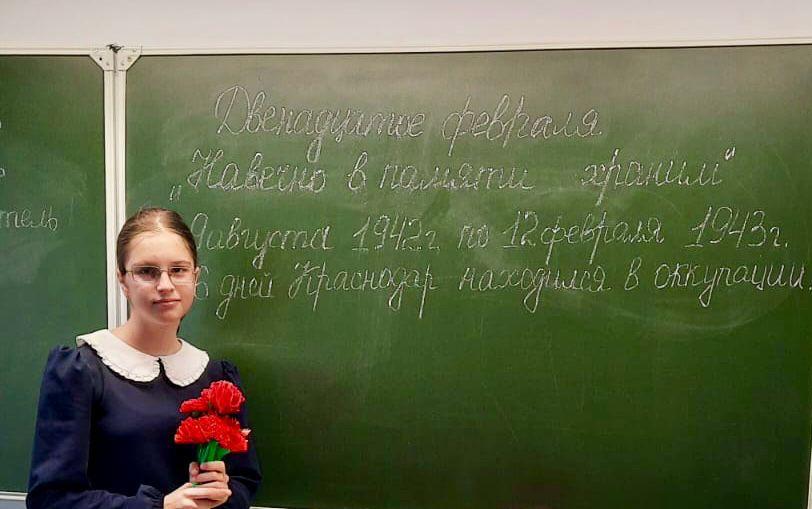 тель!
Двенадцатое февраля.
„Навечно в памяти храним“
9 августа 1942 г. по 12 февраля 1943 г.
дней Краснодар находился в оккупации.